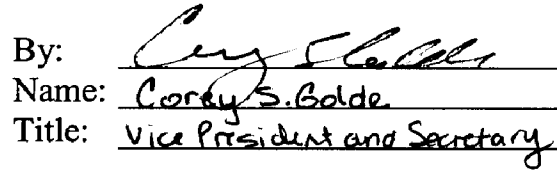 By:
Name: Corey S. Golde
Title: Vice President and Secretary